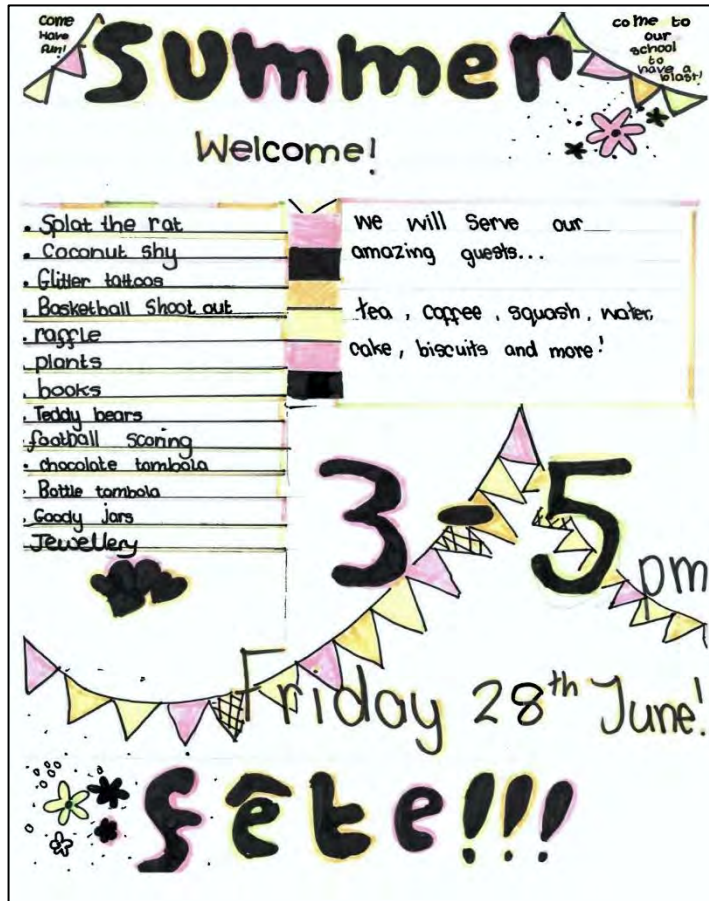 COME
Have
fun!
Summer
come to
our
school
to
have a
blast!
Welcome!
. Splat the rat
. Coconut shy
. Glitter tattoos
. Basketball Shoot out
. raffle
. plants
. books
. Teddy bears
. football scoring
. chocolate tombola
. Bottle tombola
. Goody jars
. Jewellery
we will serve our
amazing guests...
tea, coffee, squash, water,
cake, biscuits and more!
3-5
pm
Friday 28th June!
fête!!!